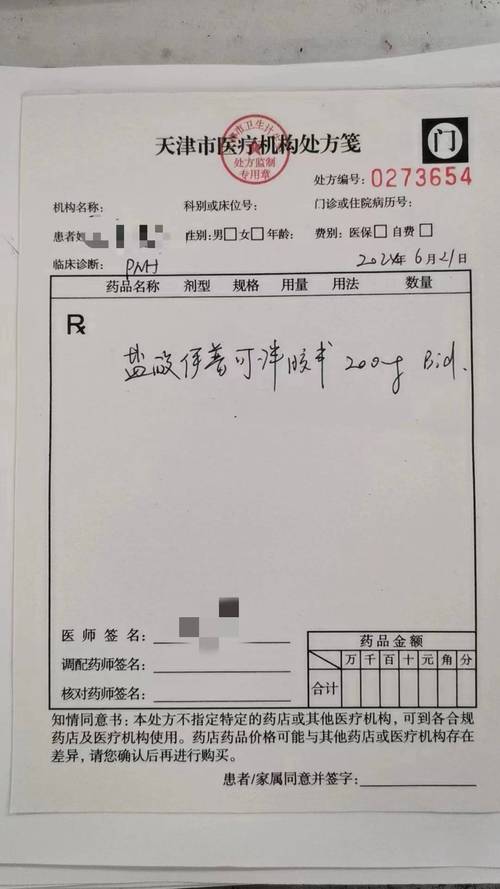 天津市医疗机构处方笺
处方监制
专用章
门
处方编号：0273654
机构名称：
科别或床位号：
门诊或住院病历号：
患者姓
性别：男□女□年龄：
费别：医保□自费□
临床诊断：PNH
2024年6月21日
药品名称 剂型 规格 用量 用法 数量
R
盐酸伊普可泮胶囊 200mg Bid.
医师签名：
调配药师签名：
核对药师签名：
药品金额
万千百十元角分
合计
知情同意书：本处方不指定特定的药店或其他医疗机构，可到各合规
药店及医疗机构使用。药店药品价格可能与其他药店或医疗机构存在
差异，请您确认后再进行购买。
患者/家属同意并签字：